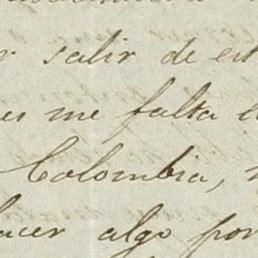 salir de
me falta
Colombia,
hacer algo por